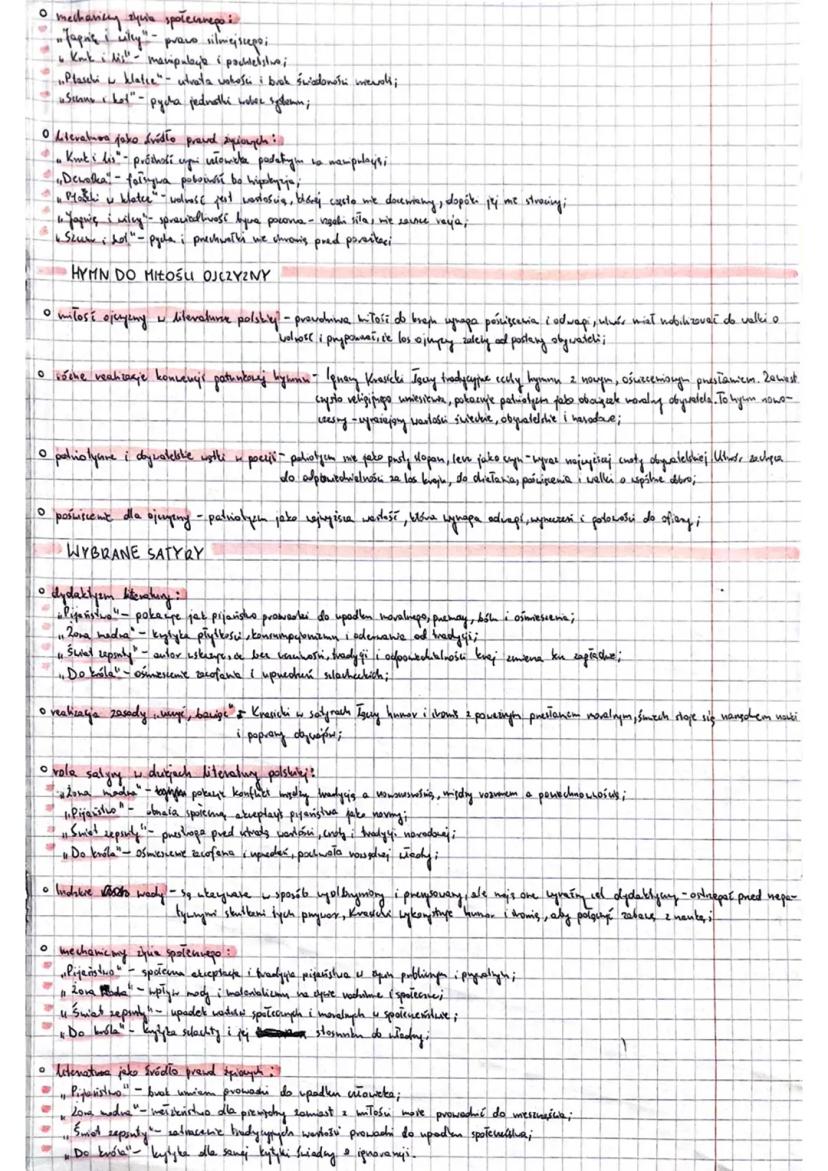 mechanizmy życia społecznego:
„Jagnię i wilcy" - prawo silniejszego;
„Kruk i lis" - manipulacja i pochlebstwo;
„Ptaszki w klatce" - utrata wolności i brak świadomości niewoli;
„Szczur i kot" - pycha jednostki wobec systemu;
literatura jako źródło prawd życiowych:
„Kruk i lis" - próżność czyni człowieka podatnym na manipulację;
„Dewotka" - fałszywa pobożność to hipokryzja;
„Ptaszki w klatce" - wolność jest wartością, której często nie doceniamy, dopóki jej nie stracimy;
„Jagnię i wilcy" - sprawiedliwość bywa pozorna - rządzi siła, nie zawsze racja;
„Szczur i kot" - pycha i przechwałki nie chronią przed porażką;
HYMN DO MIŁOŚCI OJCZYZNY
miłość ojczyzny w literaturze polskiej - prawdziwa miłość do kraju wymaga poświęcenia i odwagi, utwór miał mobilizować do walki o
wolność i przypominać, że los ojczyzny zależy od postawy obywateli;
różne realizacje konwencji gatunkowej hymnu - Ignacy Krasicki łączy tradycyjne cechy hymnu z nowym, oświeceniowym przesłaniem. Zamiast
czysto religijnego uniesienia, pokazuje patriotyzm jako obowiązek moralny obywatela. To hymn nowo-
czesny - wyrażający wartości świeckie, obywatelskie i narodowe;
patriotyczne i obywatelskie wątki w poezji - patriotyzm nie jako pusty slogan, lecz jako czyn - wyraz najwyższej cnoty obywatelskiej. Utwór zachęca
do odpowiedzialności za los kraju, do działania, poświęcenia i walki o wspólne dobro;
poświęcenie dla ojczyzny - patriotyzm jako najwyższa wartość, która wymaga odwagi, wyrzeczeń i gotowości do ofiary;
WYBRANE SATYRY
dydaktyzm literatury:
„Pijaństwo" - pokazuje jak pijaństwo prowadzi do upadku moralnego, przemocy, bólu i ośmieszenia;
„Żona modna" - krytyka płytkości, konsumpcjonizmu i oderwania od tradycji;
„Świat zepsuty" - autor wskazuje, że bez uczciwości, tradycji i odpowiedzialności kraj zmierza ku zagładzie;
„Do króla" - ośmieszenie zacofania i uprzedzeń szlacheckich;
realizacja zasady „uczyć, bawiąc" - Krasicki w satyrach łączy humor i ironię z poważnym przesłaniem moralnym, śmiech staje się narzędziem nauki
i poprawy obyczajów;
rola satyry w dziejach literatury polskiej:
„Żona modna" - pokazuje konflikt między tradycją a nowoczesnością, między rozumem a powierzchownością;
„Pijaństwo" - obnaża społeczną akceptację pijaństwa jako normy;
„Świat zepsuty" - przestroga przed utratą wartości, cnoty i tradycji narodowej;
„Do króla" - ośmieszenie zacofania i uprzedzeń, pochwała rozsądnej władzy;
ludzkie wady - są ukazywane w sposób wyolbrzymiony i prześmiewczy, ale mają one wyraźny cel dydaktyczny - ostrzegać przed nega-
tywnymi skutkami tych przywar, Krasicki wykorzystuje humor i ironię, aby połączyć zabawę z nauką;
mechanizmy życia społecznego:
„Pijaństwo" - społeczna akceptacja i tradycja pijaństwa w życiu publicznym i prywatnym;
„Żona modna" - wpływ mody i materializmu na życie rodzinne i społeczne;
„Świat zepsuty" - upadek wartości społecznych i moralnych w społeczeństwie;
„Do króla" - krytyka szlachty i jej stosunku do władzy;
literatura jako źródło prawd życiowych:
„Pijaństwo" - brak umiaru prowadzi do upadku człowieka;
„Żona modna" - małżeństwo dla pieniędzy zamiast z miłości może prowadzić do nieszczęścia;
„Świat zepsuty" - zatracenie tradycyjnych wartości prowadzi do upadku społeczeństwa;
„Do króla" - krytyka dla samej krytyki świadczy o ignorancji.